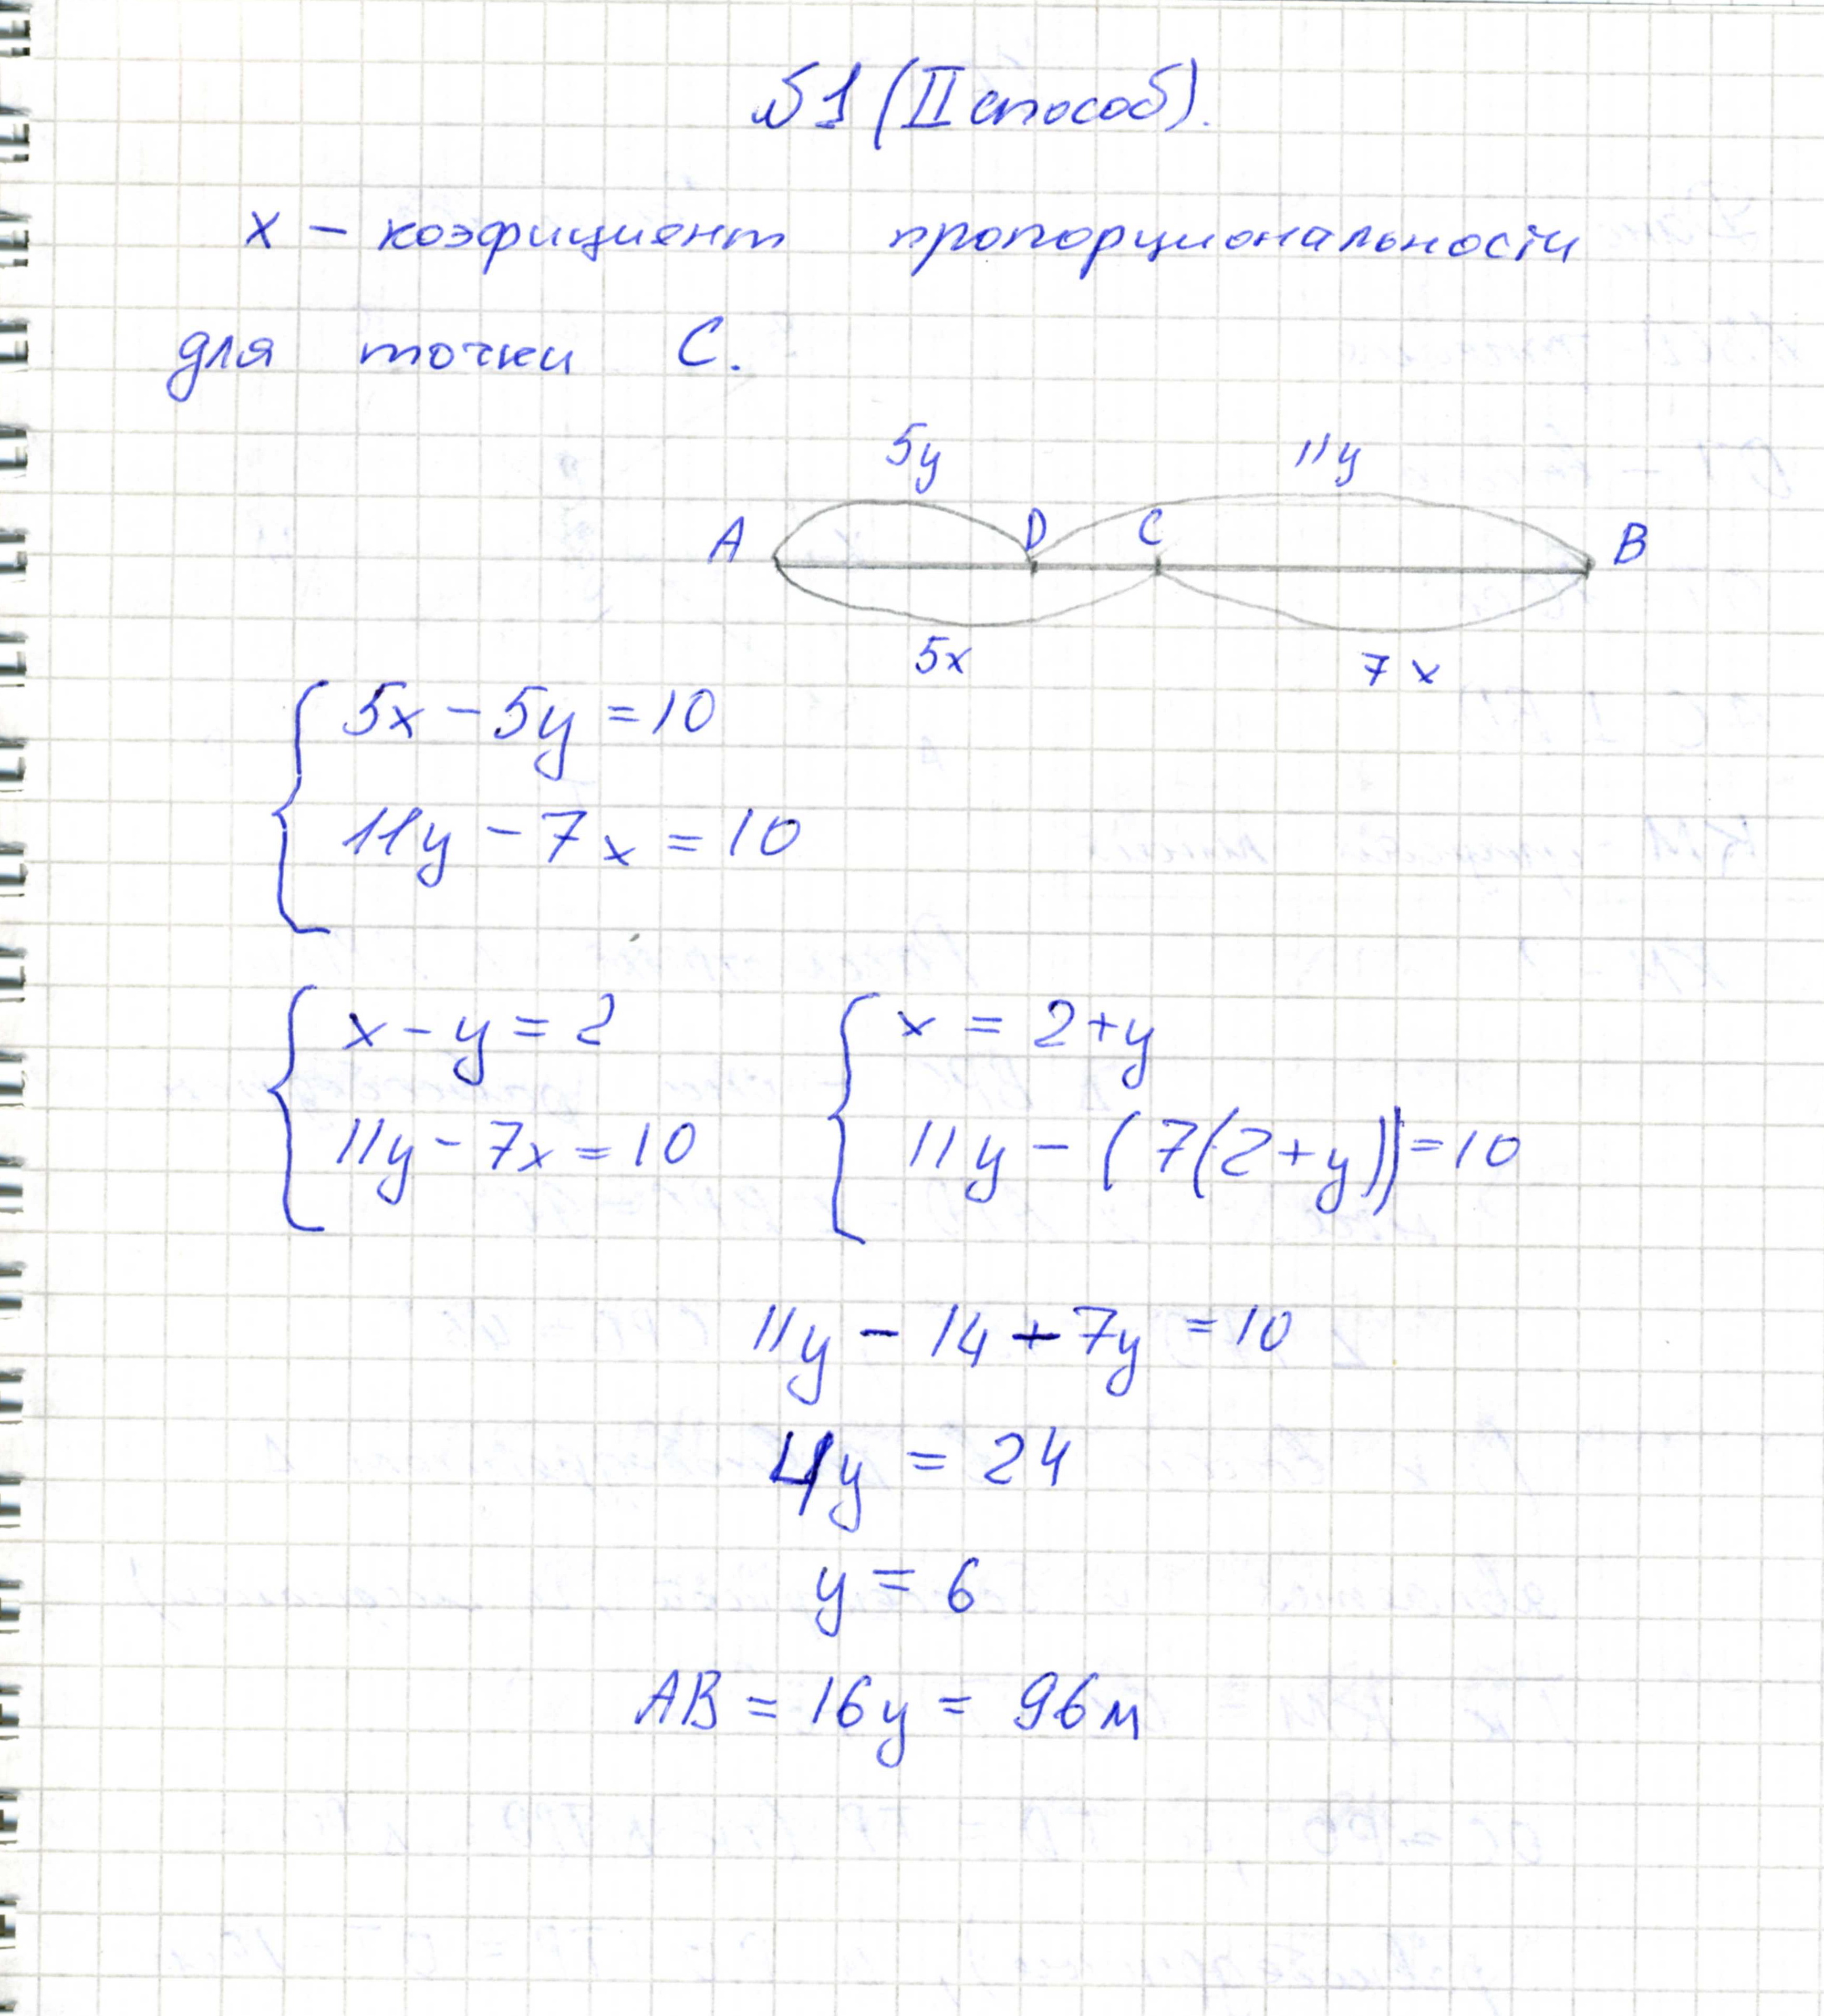 №1 (II способ).
x – коэфициент пропорциональности
для точки С.
5y 11y
A D C B
5x 7x
5x - 5y = 10
11y - 7x = 10
x - y = 2 x = 2+y
11y - 7x = 10 11y - (7(2+y)) = 10
11y - 14 + 7y = 10
4y = 24
y = 6
AB = 16y = 96м